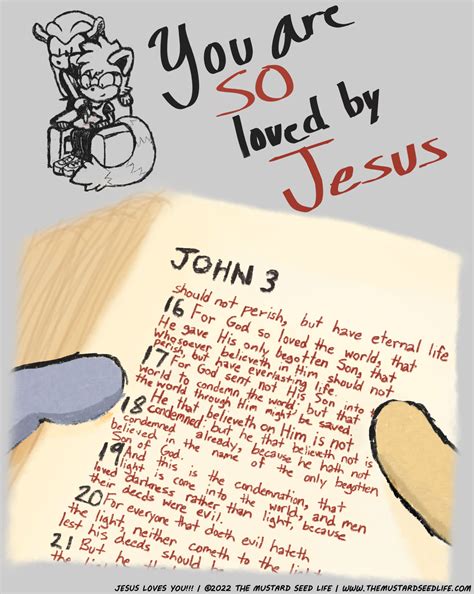 You are
SO
loved by
Jesus
JOHN 3
should not perish, but have eternal life
16 For God so loved the world, that
He gave His only begotten Son, that
whosoever believeth in Him, should not
perish, but have everlasting life.
17 For God sent not His Son into the
world to condemn the world, but that
the world through Him might be saved.
18 He that believeth on Him is not
condemned: but he that believeth not is
condemned already, because he hath not
believed in the name of the only begotten
Son of God.
19 And this is the condemnation, that
light is come into the world, and men
loved darkness rather than light, because
their deeds were evil.
20 For everyone that doeth evil hateth
the light, neither cometh to the light
lest his deeds should be
21 But he
the light
JESUS LOVES YOU!!! | ©2022 THE MUSTARD SEED LIFE | WWW.THEMUSTARDSEEDLIFE.COM